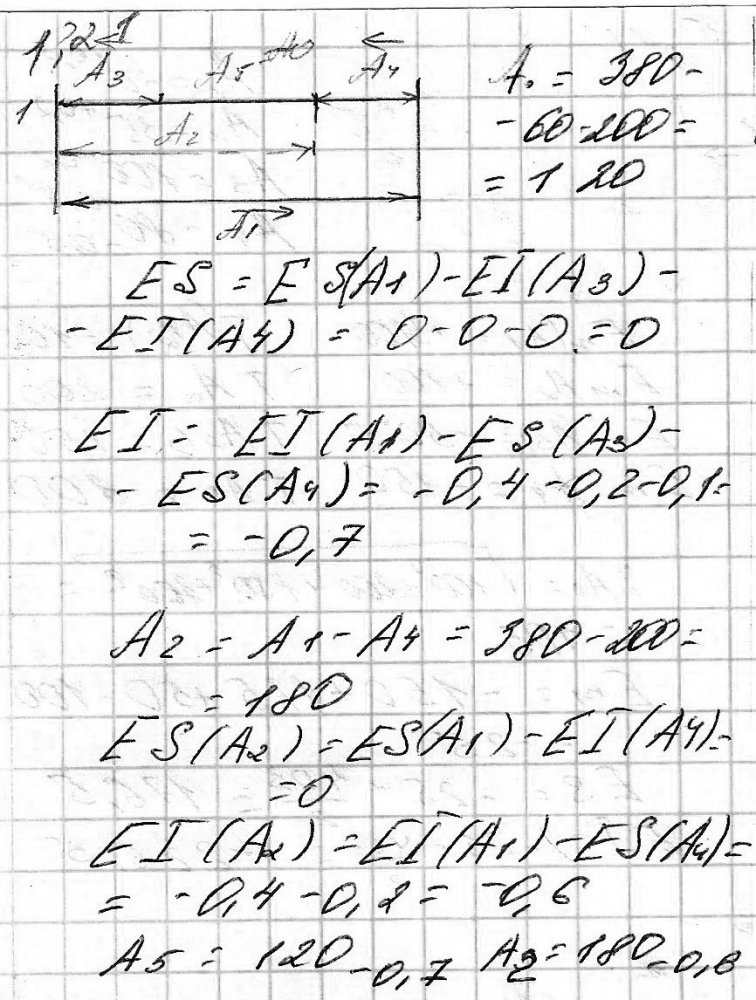 1,2
A3 A5 A0 A4
1
A2
A1
A. = 380-
-60-200=
= 120
ES = ES(A1)-EI(A3)-
-EI(A4) = 0-0-0.=0
EI= EI(A1)-ES(A3)-
- ES(A4) = -0,4-0,2-0,1=
= -0,7
A2 = A1-A4 = 380-200=
= 180
ES(A2)=ES(A1)-EI(A4)=
=0
EI(A2)=EI(A1)-ES(A4)=
= -0,4-0,2= -0,6
A5 = 120 -0,7 A2=180-0,6